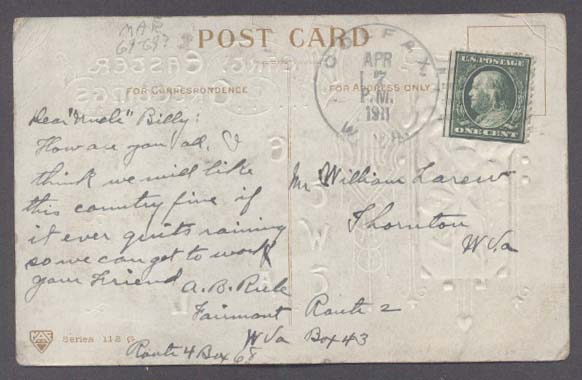 MAR
POST CARD
FOR CORRESPONDENCE
FOR ADDRESS ONLY
COLFAX
APR
17
P.M.
1911
W. VA.
U.S. POSTAGE
ONE CENT
Dear "Uncle" Billy:
How are you all. I
think we will like
this country fine if
it ever quits raining
so we can get to work
your Friend
A. B.
Fairmont
W Va
Route 4 Box 68
Mr William Larew
Thornton
W Va
Route 2
Box 43
Series 118 G